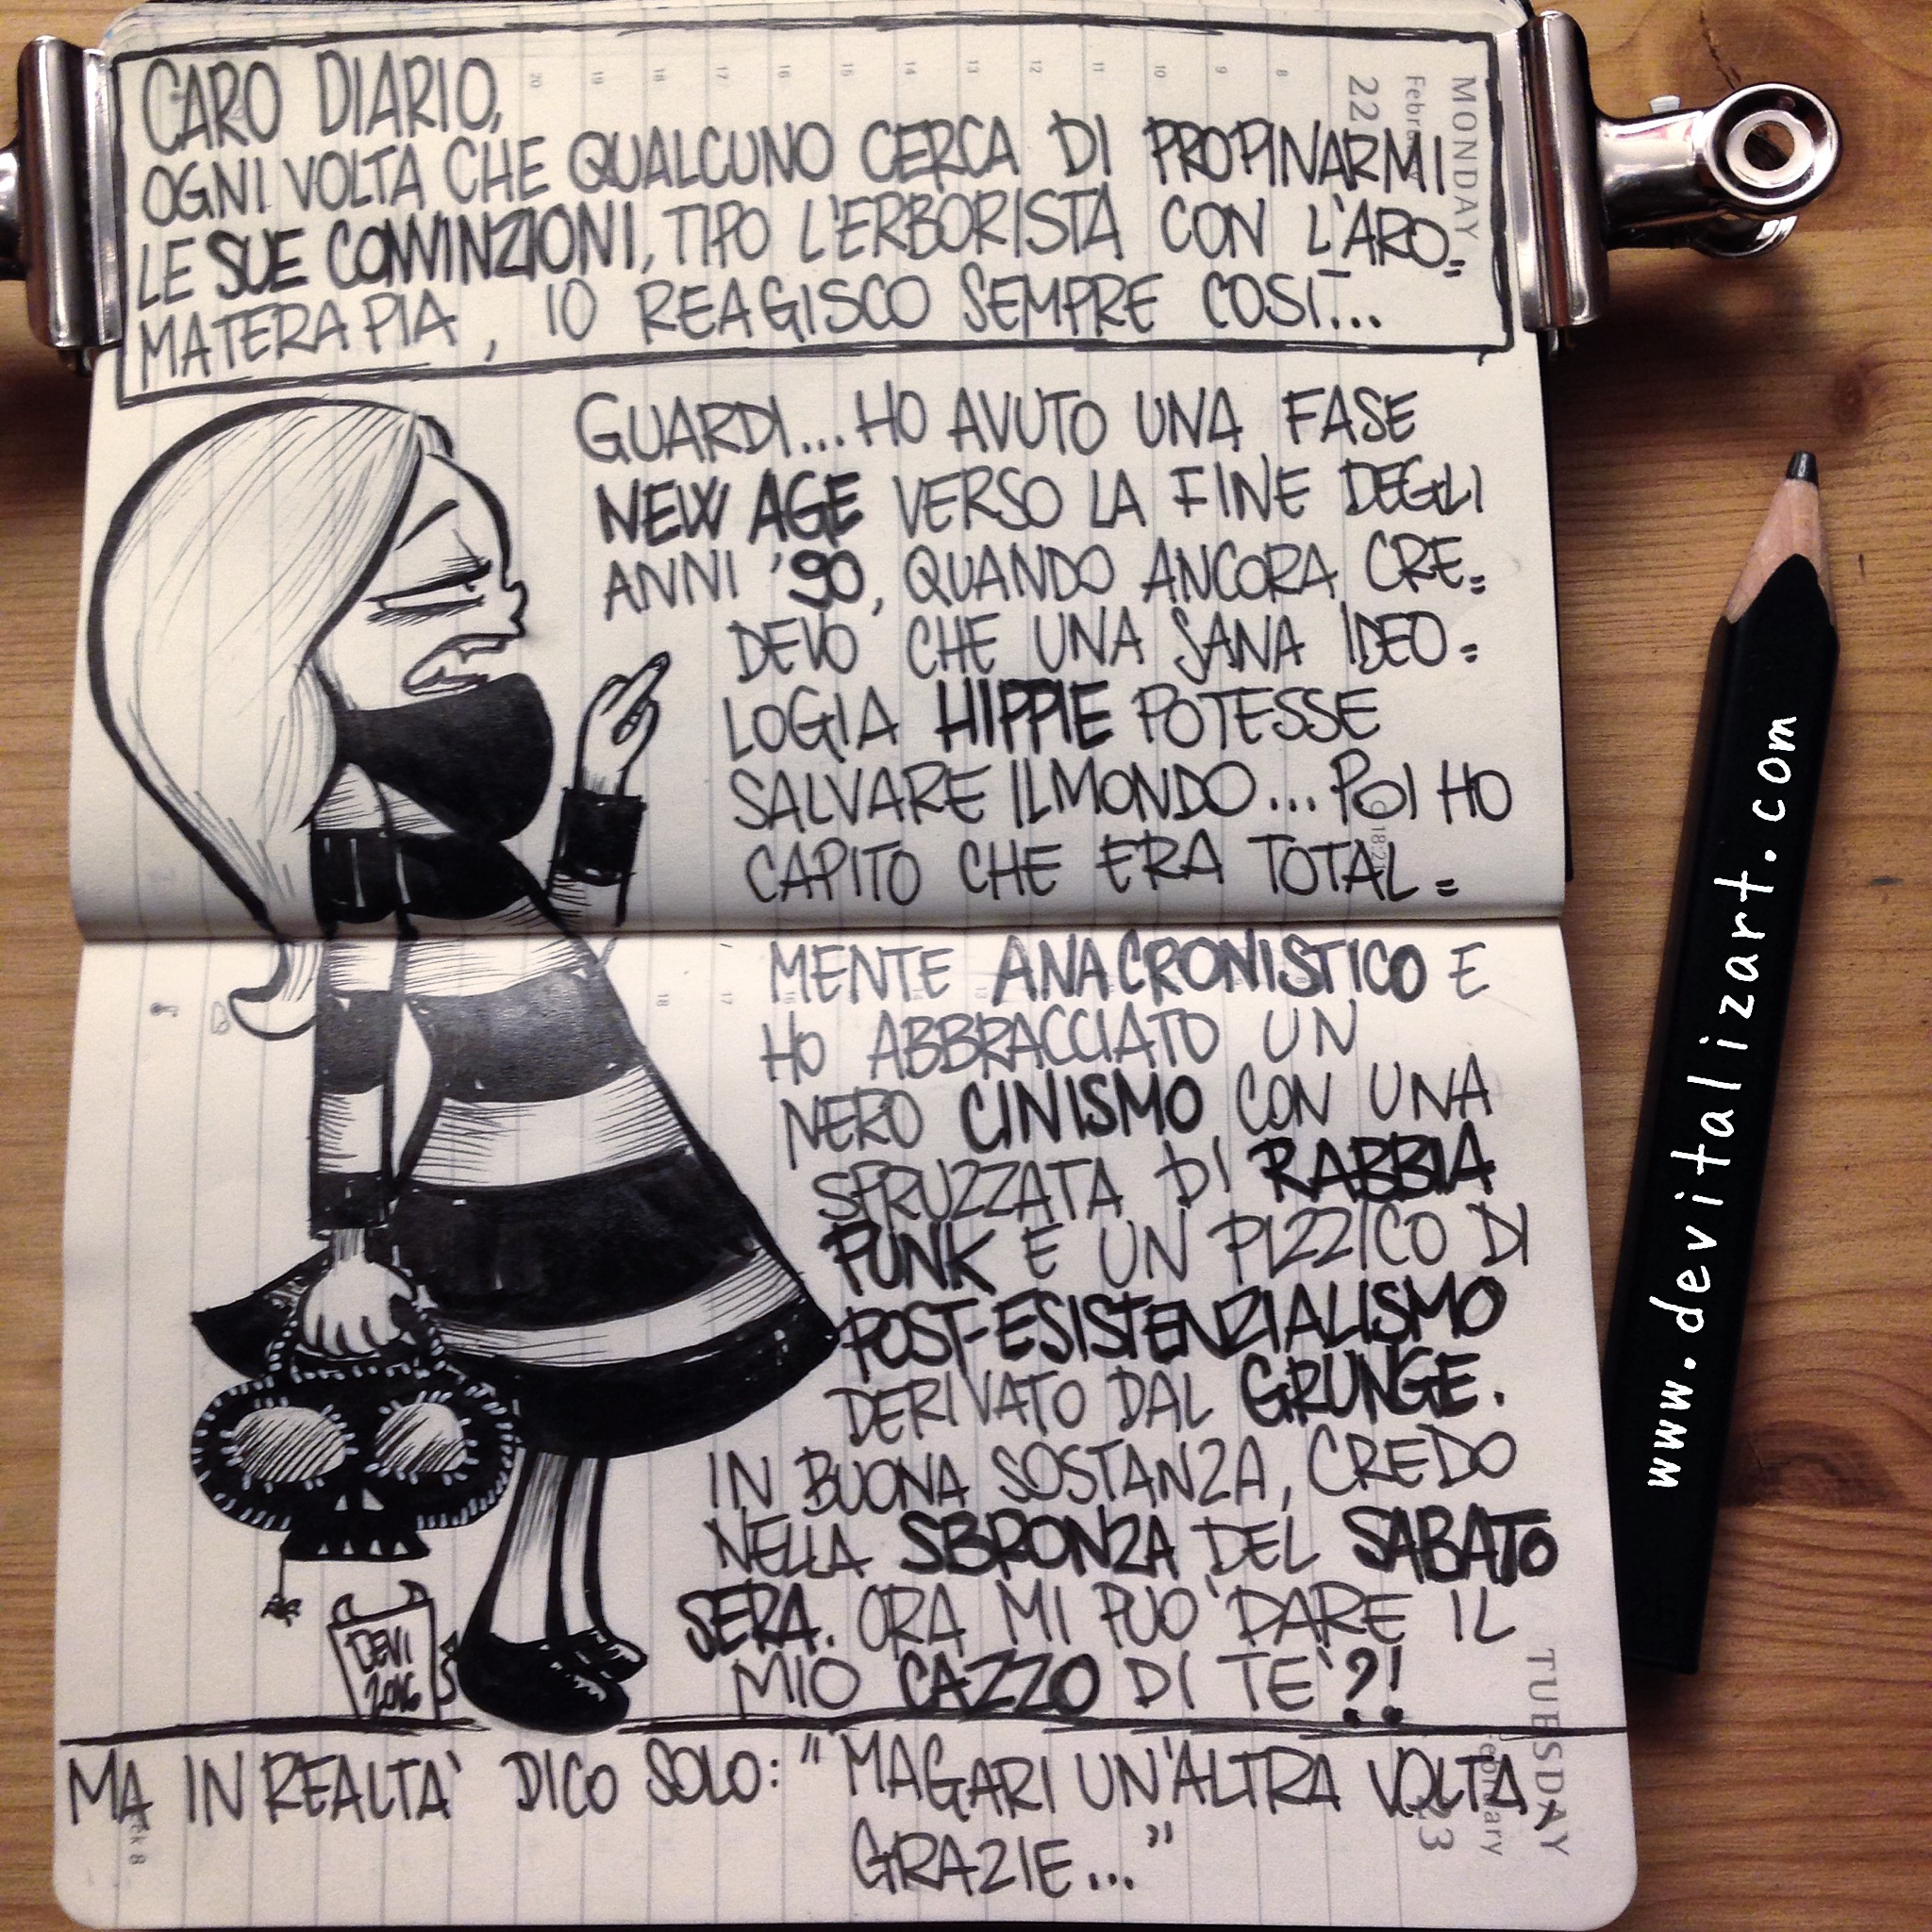 CARO DIARIO,
OGNI VOLTA CHE QUALCUNO CERCA DI PROPINARMI
LE SUE CONVINZIONI, TIPO L'ERBORISTA CON L'ARO=
MATERAPIA, IO REAGISCO SEMPRE COSÌ...
GUARDI... HO AVUTO UNA FASE
NEW AGE VERSO LA FINE DEGLI
ANNI '90, QUANDO ANCORA CRE=
DEVO CHE UNA SANA IDEO=
LOGIA HIPPIE POTESSE
SALVARE IL MONDO... POI HO
CAPITO CHE ERA TOTAL=
MENTE ANACRONISTICO E
HO ABBRACCIATO UN
NERO CINISMO CON UNA
SPRUZZATA DI RABBIA
PUNK E UN PIZZICO DI
POST-ESISTENZIALISMO
DERIVATO DAL GRUNGE.
IN BUONA SOSTANZA, CREDO
NELLA SBRONZA DEL SABATO
SERA. ORA MI PUO' DARE IL
MIO CAZZO DI TE'?!
DEVI
2016
MA IN REALTA' DICO SOLO: "MAGARI UN'ALTRA VOLTA,
GRAZIE..."
MONDAY
22
TUESDAY
23
8 9 10 11 12 13 14 15 16 17 18 19 20
www.devitalizart.com